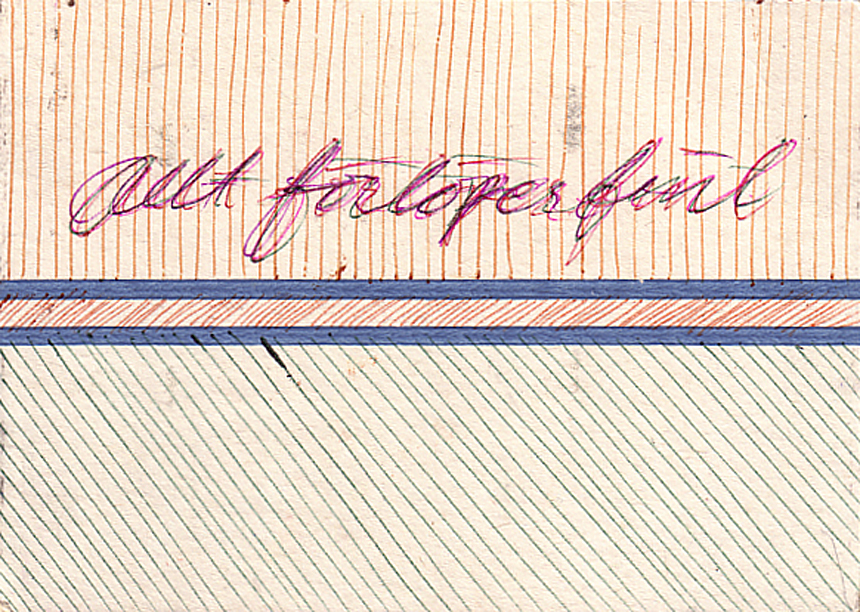 allt förlöper fint